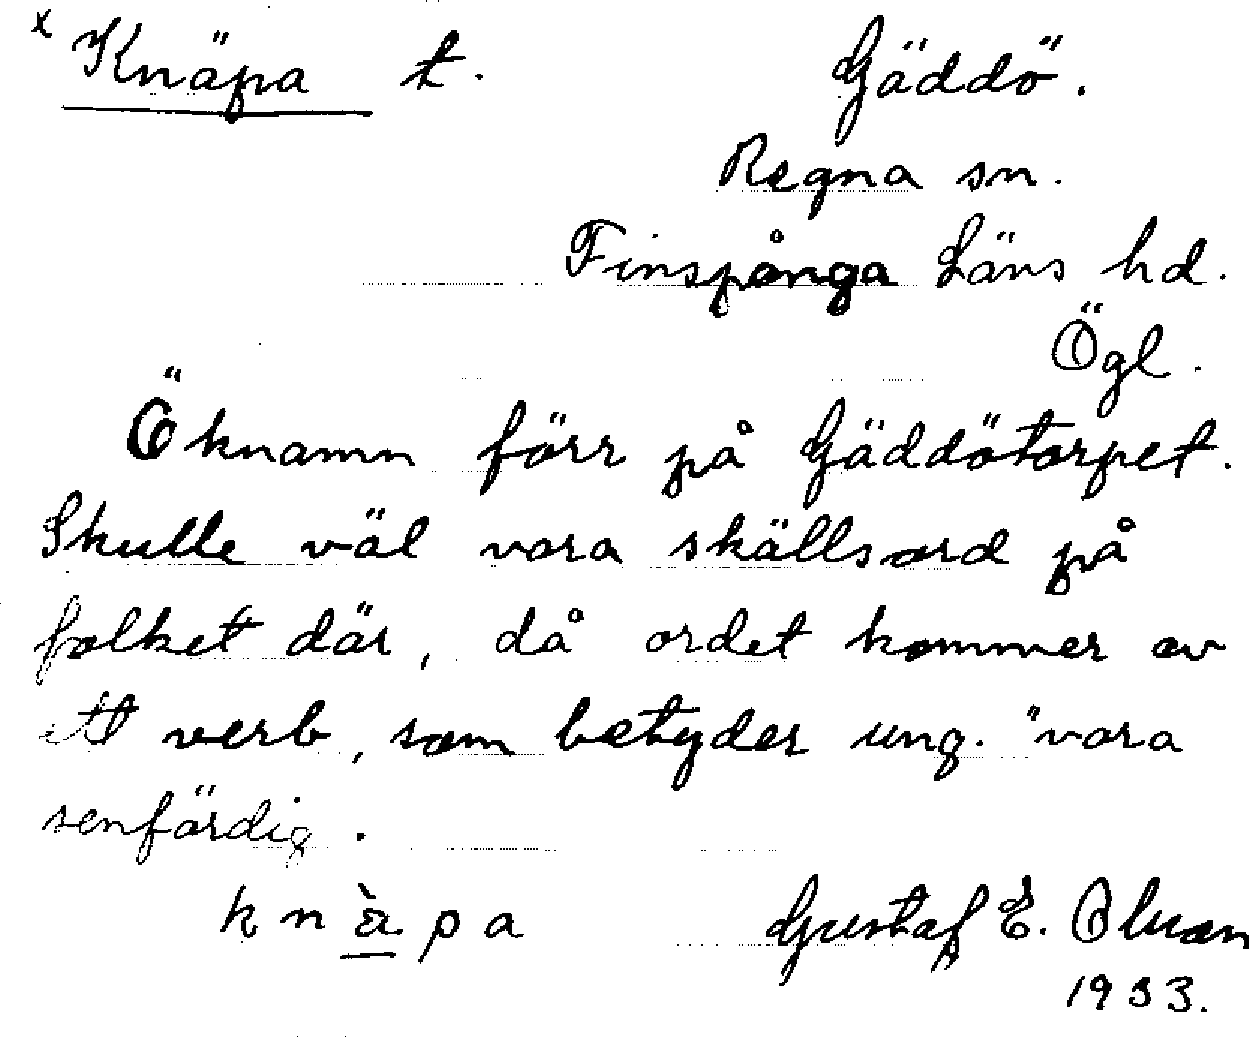 x Knäpa t. Gäddö.
Regna sn.
Finspånga Läns hd.
Ögl.
Öknamn förr på Gäddötorpet.
Skulle väl vara skällsord på
folket där, då ordet kommer av
ett verb, som betyder ung. "vara
senfärdig.
knàpa Gustaf E. Olsson
1933.